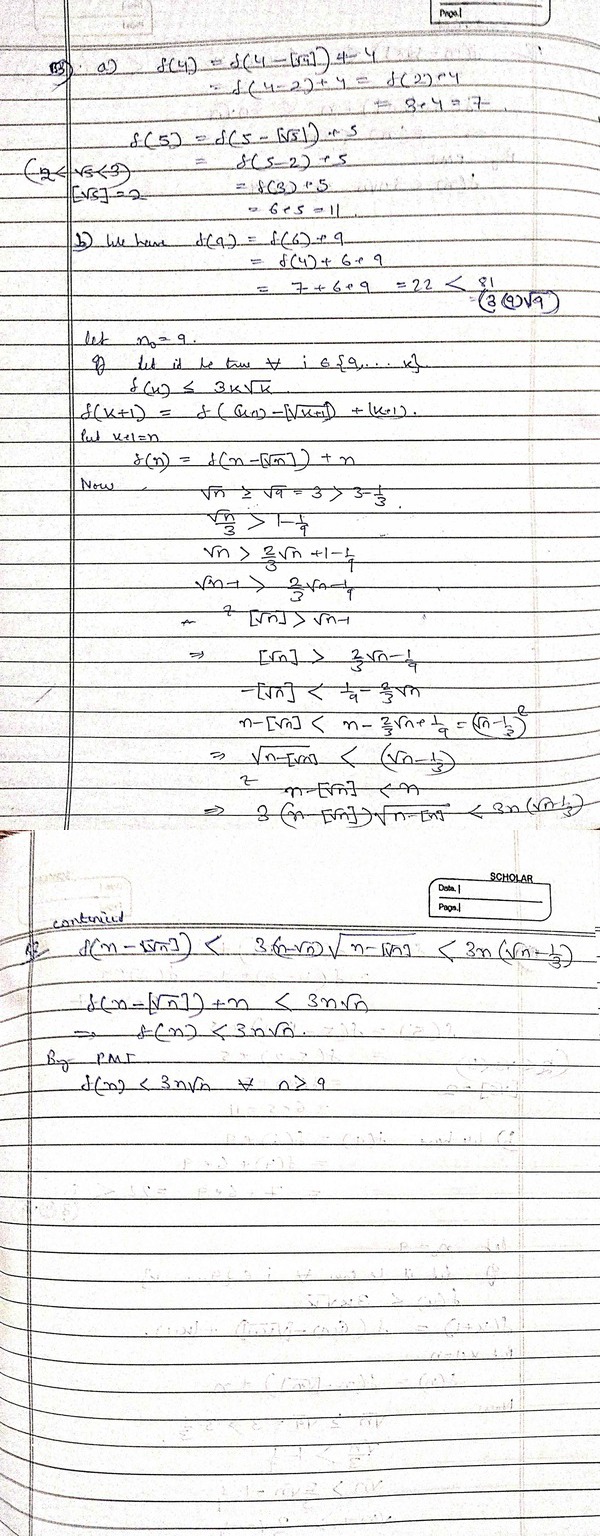 Page.|
a) f(4) = f(4 - [√4]) + 4
= f(4-2) + 4 = f(2) + 4
= 3 + 4 = 7
f(5) = f(5 - [√5]) + 5
(2 < √5 < 3) = f(5-2) + 5
[√5] = 2 = f(3) + 5
= 6 + 5 = 11
b) We have f(9) = f(6) + 9
= f(4) + 6 + 9
= 7 + 6 + 9 = 22 < 81
= (3(9)√9)
let n₀ = 9.
let it be true ∀ i ∈ {9, .... k}
f(k) ≤ 3k√k
f(k+1) = f((k+1) - [√k+1]) + (k+1).
Put k+1 = n
f(n) = f(n - [√n]) + n
Now √n ≥ √9 = 3 > 3 - 1/3
√n/3 > 1 - 1/9
√n > 2/3 √n + 1 - 1/9
√n - 1 > 2/3 √n - 1/9
[√n] > √n - 1
⇒ [√n] > 2/3 √n - 1/9
-[√n] < 1/9 - 2/3 √n
n - [√n] < n - 2/3 √n + 1/9 = (√n - 1/3)²
⇒ √n - [√n] < (√n - 1/3)
n - [√n] < n
⇒ 3(n - [√n])√n - [√n] < 3n(√n - 1/3)
SCHOLAR
Date.|
Page.|
continued
f(n - [√n]) < 3(n - √n)√n - [√n] < 3n(√n - 1/3)
f(n - [√n]) + n < 3n√n
⇒ f(n) < 3n√n.
By PMI
f(n) < 3n√n ∀ n ≥ 9